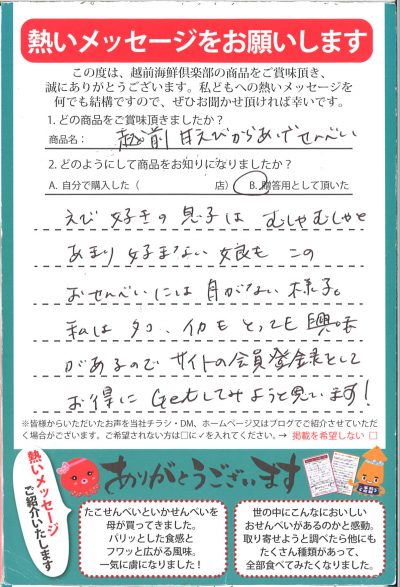 熱いメッセージをお願いします
この度は、越前海鮮倶楽部の商品をご賞味頂き、
誠にありがとうございます。私どもへの熱いメッセージを
何でも結構ですので、ぜひお聞かせ頂ければ幸いです。
1. どの商品をご賞味頂きましたか?
商品名: 越前甘えびからあげせんべい
2. どのようにして商品をお知りになりましたか?
A. 自分で購入した( 店) B. 贈答用として頂いた
えび好きの息子はむしゃむしゃと
あまり好まない娘もこの
おせんべいには目がない様子。
私はタコ、イカもとっても興味
があるのでサイトの会員登録をして
お得にGetしてみようと思います!
※皆様からいただいたお声を当社チラシ・DM、ホームページ又はブログでご紹介させていただ
く場合がございます。ご希望されない方は□に✓を入れてください。→ 掲載を希望しない □
熱いメッセージ
ご紹介いたします
ありがとうございます
たこせんべいといかせんべいを
母が買ってきました。
パリッとした食感と
フワッと広がる風味。
一気に虜になりました!
世の中にこんなにおいしい
おせんべいがあるのかと感動。
取り寄せようと調べたら他にも
たくさん種類があって、
全部食べてみたくなりました。